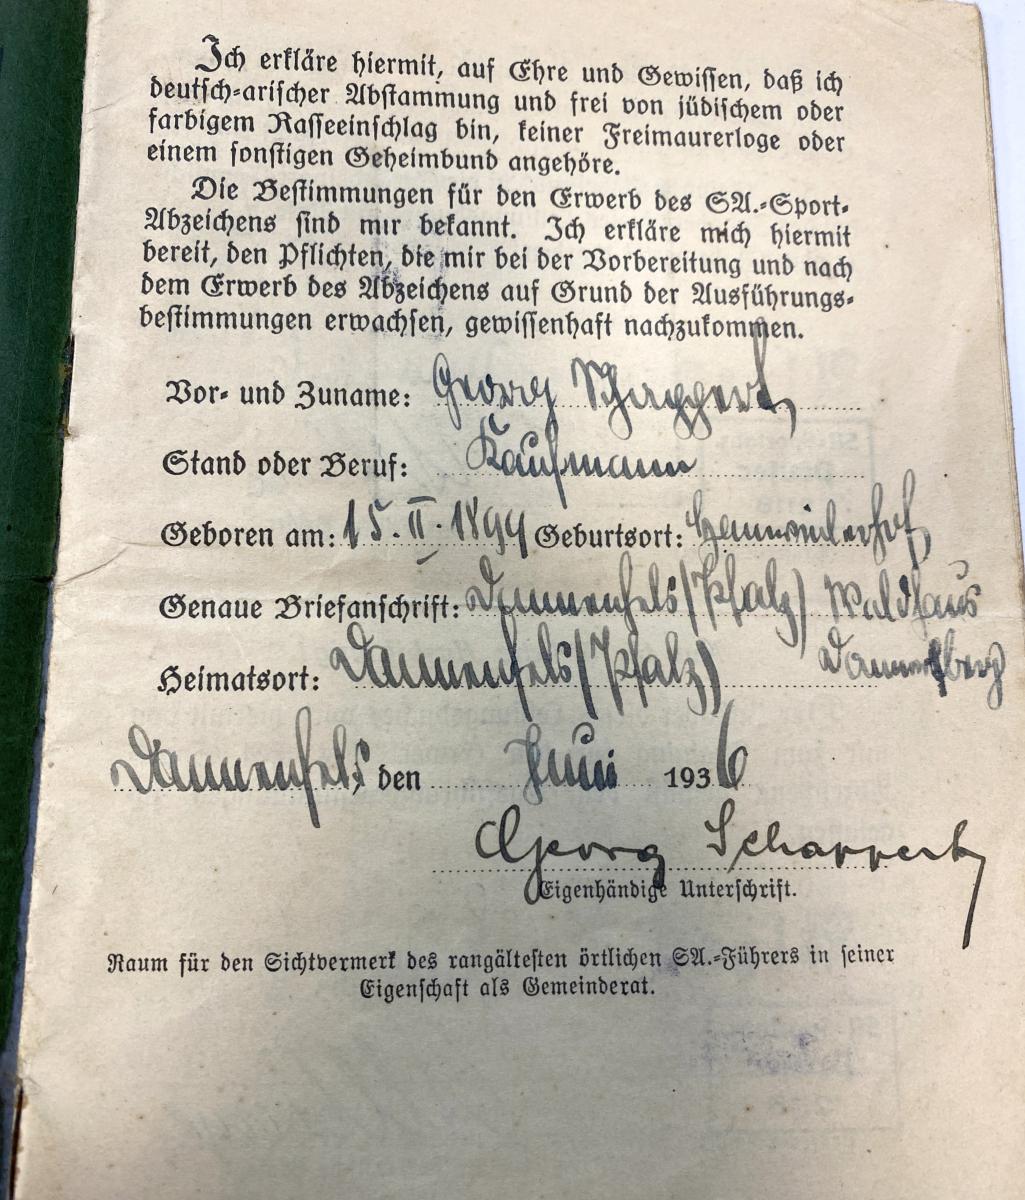 Ich erkläre hiermit, auf Ehre und Gewissen, daß ich
deutsch-arischer Abstammung und frei von jüdischem oder
farbigem Rasseeinschlag bin, keiner Freimaurerloge oder
einem sonstigen Geheimbund angehöre.
Die Bestimmungen für den Erwerb des SA.-Sport-
Abzeichens sind mir bekannt. Ich erkläre mich hiermit
bereit, den Pflichten, die mir bei der Vorbereitung und nach
dem Erwerb des Abzeichens auf Grund der Ausführungs-
bestimmungen erwachsen, gewissenhaft nachzukommen.
Vor- und Zuname: Georg Schappert
Stand oder Beruf: Kaufmann
Geboren am: 15. II. 1899 Geburtsort:
Genaue Briefanschrift: Dannenfels (Pfalz) Waldhaus
Donnersberg
Heimatsort: Dannenfels (Pfalz)
Dannenfels, den Juni 1936
Georg Schappert
Eigenhändige Unterschrift.
Raum für den Sichtvermerk des rangältesten örtlichen SA.-Führers in seiner
Eigenschaft als Gemeinderat.